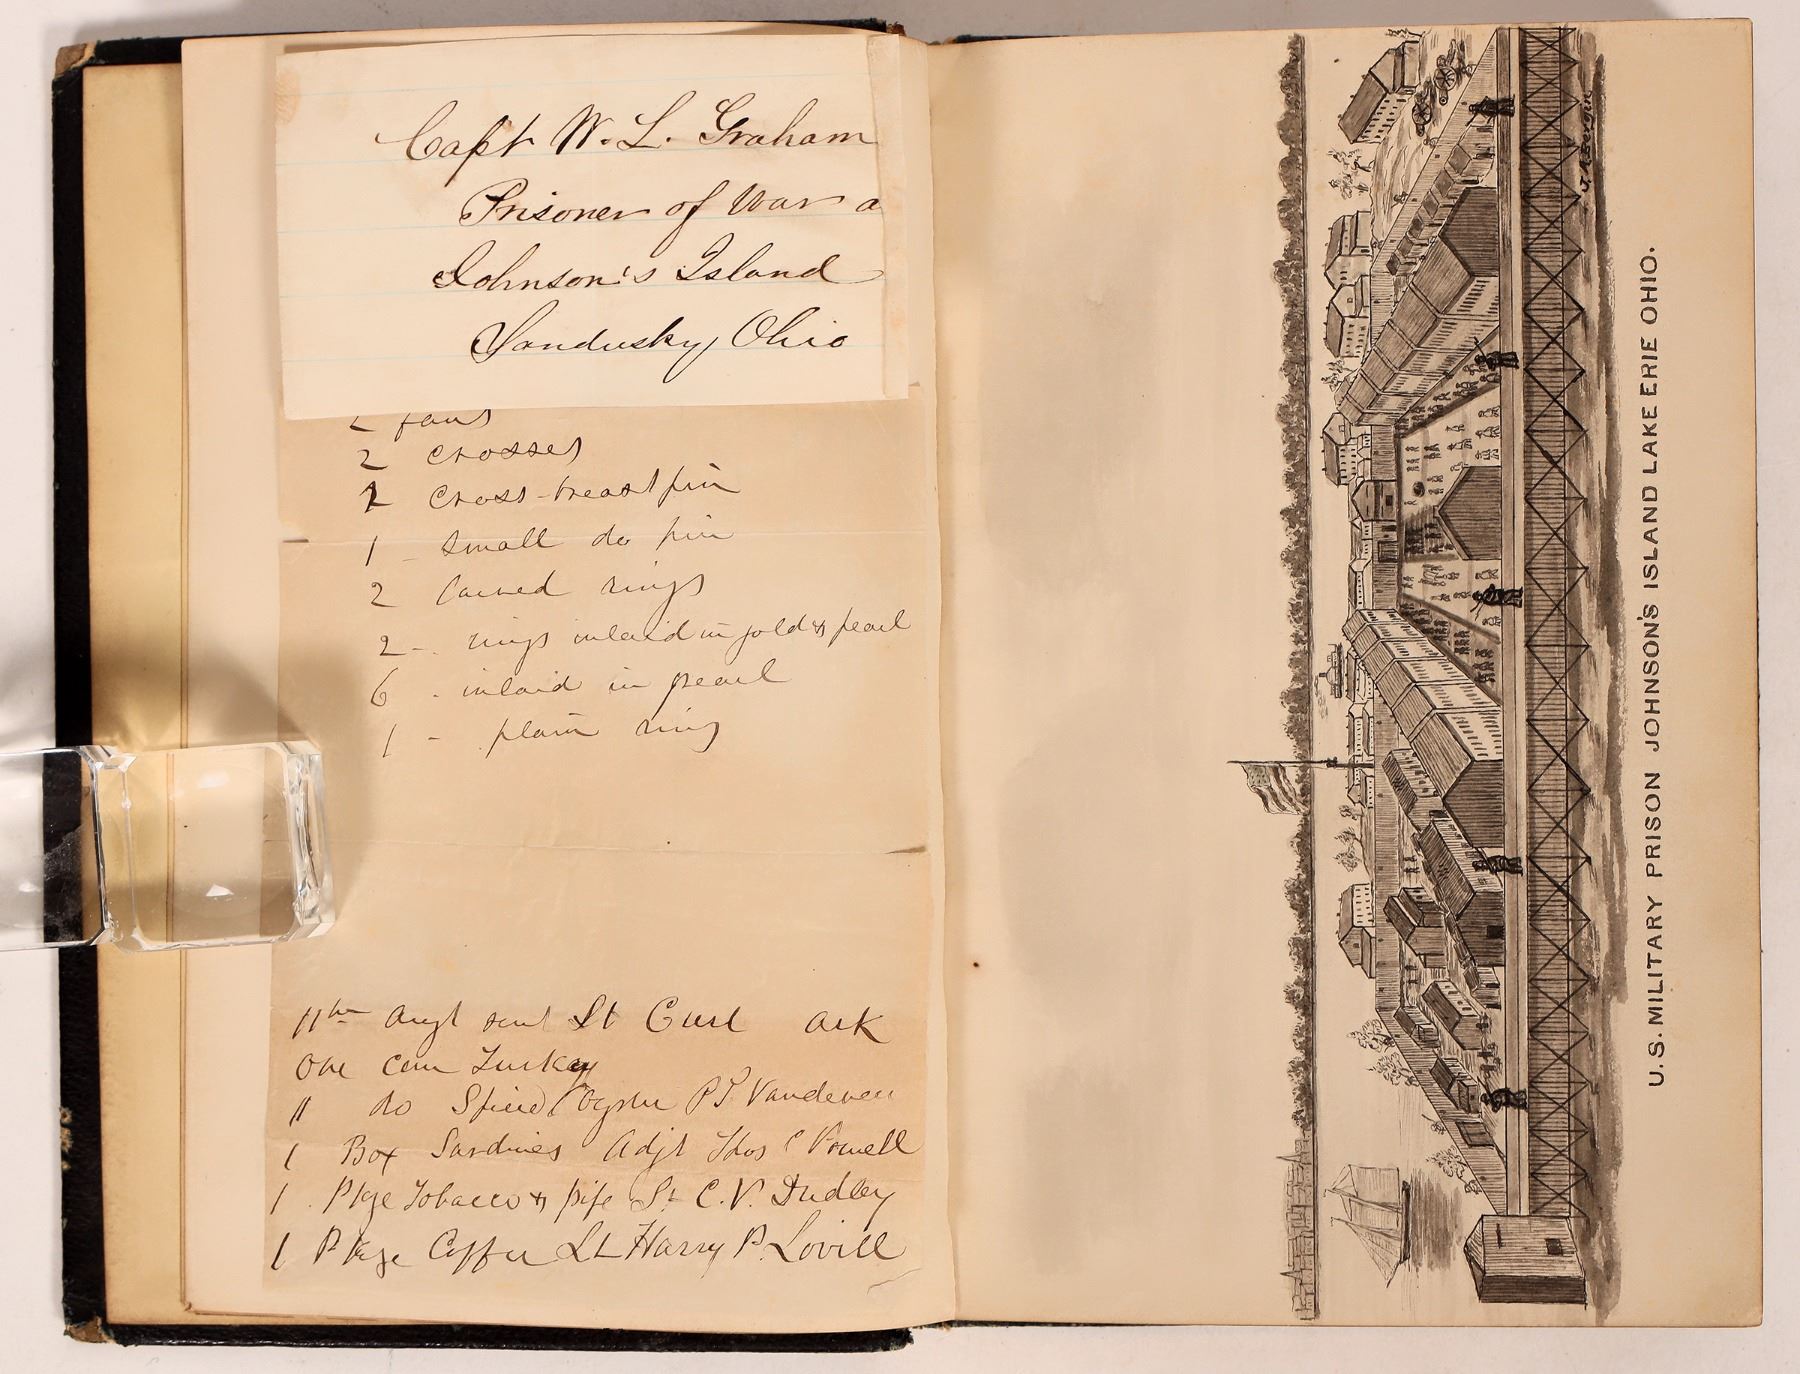 Capt W. L. Graham
Prisoner of War a
Johnson's Island
Sandusky Ohio
2 fans
2 crosses
1 cross-breast pin
1 - small do pin
2 carved rings
2 - rings inlaid in gold & pearl
6 - inlaid in pearl
1 - plain ring
11th Augt sent Lt Curl Ark
One can Turkey
11 do Spiced Oyster P T Vandeven
1 Box Sardines Adjt Thos C Powell
1 Pkge Tobacco & pipe Lt C. V. Dudley
1 Pkge Coffee Lt Harry P. Lovill
J. A. Bergin
U.S. MILITARY PRISON JOHNSON'S ISLAND LAKE ERIE OHIO.